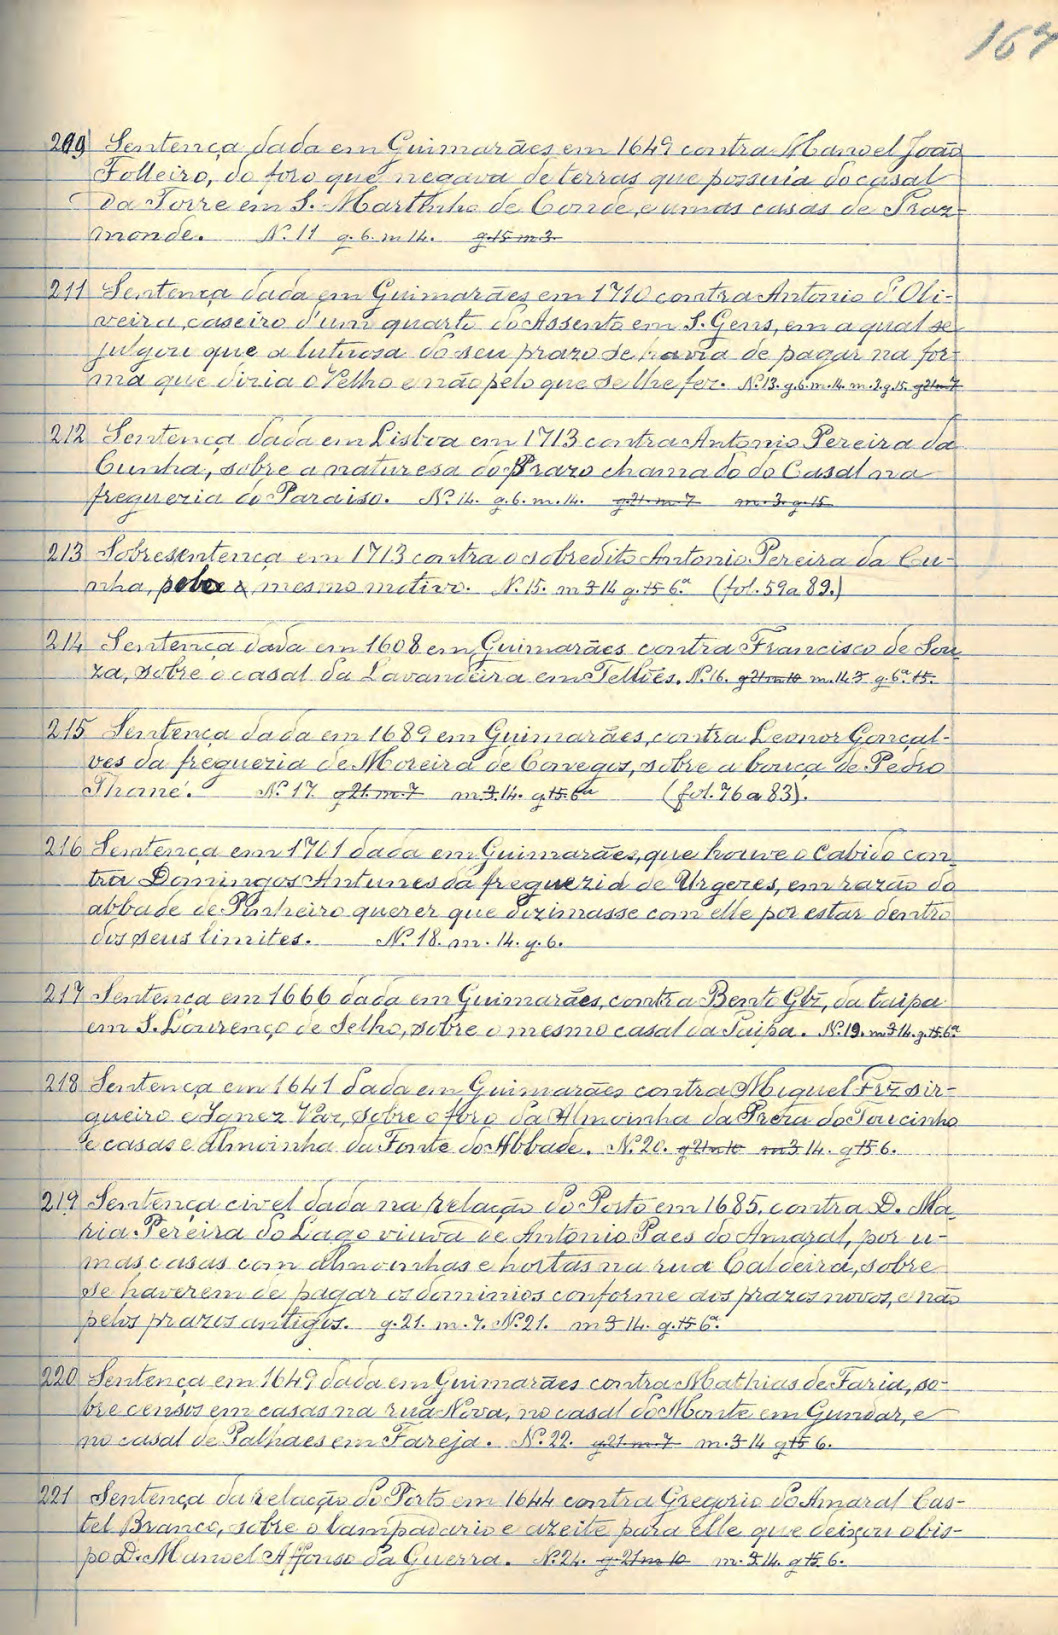 167
209 Sentença dada em Guimarães em 1649 contra Manoel João
Folleiro, do foro que negava de terras que possuia do casal
da Torre em S. Marthinho de Conde, e umas casas de Traz-
monde. Nº 11 g. 6. m 14. g. 15 m 3.
211 Sentença dada em Guimarães em 1710 contra Antonio d'Oli-
veira, caseiro d'um quarto do Assento em S. Gens, em a qual se
julgou que a lutuosa do seu prazo se havia de pagar na for-
ma que diria o Velho e não pelo que se lhe fez. Nº 13. g. 6. m. 14. m. 3. g. 15. g 21 m 7
212 Sentença dada em Lisboa em 1713 contra Antonio Pereira da
Cunha, sobre a naturesa do Prazo chamado do Casal na
freguezia do Paraiso. Nº 14. g. 6. m. 14. g 21. m. 7 m. 3. g. 15
213 Sobresentença em 1713 contra o sobredito Antonio Pereira da Cu-
nha, mesmo motivo. Nº 15. m 3 14 g. 15 6ª (fol. 59 a 89.)
214 Sentença dada em 1608 em Guimarães contra Francisco de Sou-
za, sobre o casal da Lavandeira em Telhões. Nº 16. g 21 m 10 m. 14 3 g. 6ª 15.
215 Sentença dada em 1689 em Guimarães, contra Leonor Gonçal-
ves da freguezia de Moreira de Conegos, sobre a bouça de Pedro
Thomé. Nº 17. g 21. m. 7 m 3. 14. g. 15. 6ª (fol. 76 a 83).
216 Sentença em 1701 dada em Guimarães, que houve o Cabido con-
tra Domingos Antunes da freguezia de Urgezes, em razão do
abbade de Pinheiro querer que dizimasse com elle por estar dentro
dos seus limites. Nº 18. m. 14. g. 6.
217 Sentença em 1666 dada em Guimarães, contra Bento Glz, da taipa
em S. Lourenço de Selho, sobre o mesmo casal da Taipa. Nº 19. m 3 14. g. 15. 6ª
218 Sentença em 1641 dada em Guimarães contra Miguel Frz sir-
gueiro e Ignez Vaz, sobre o foro da Almoinha da Preza do Toucinho
e casas e almoinha da Fonte do Abbade. Nº 20. g 21 m 10 m 3 14. g 15 6.
219 Sentença civel dada na relação do Porto em 1685. contra D. Ma-
ria Pereira do Lago viuva de Antonio Paes do Amaral, por u-
mas casas com almoinhas e hortas na rua Caldeirã, sobre
se haverem de pagar os dominios conforme aos prazos novos, e não
pelos prazos antigos. g. 21. m. 7. Nº 21. m 3 14. g. 15 6ª
220 Sentença em 1649 dada em Guimarães contra Mathias de Faria, so-
bre censos em casas na rua Nova, no casal do Monte em Gundar, e
no casal de Palhaes em Fareja. Nº 22. g 21 m. 7 m. 3 14 g 15 6.
221 Sentença da relação do Porto em 1644 contra Gregorio do Amaral Cas-
tel Branco, sobre o lampadario e azeite para elle que deixou o bis-
po D. Manoel Affonso da Guerra. Nº 24. g. 21 m 10 m. 3. 14. g 15 6.